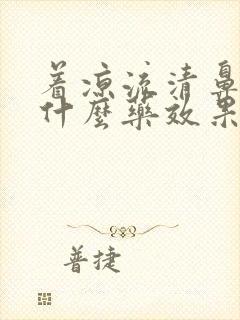 着凉流清鼻
什麽藥效果
普捷